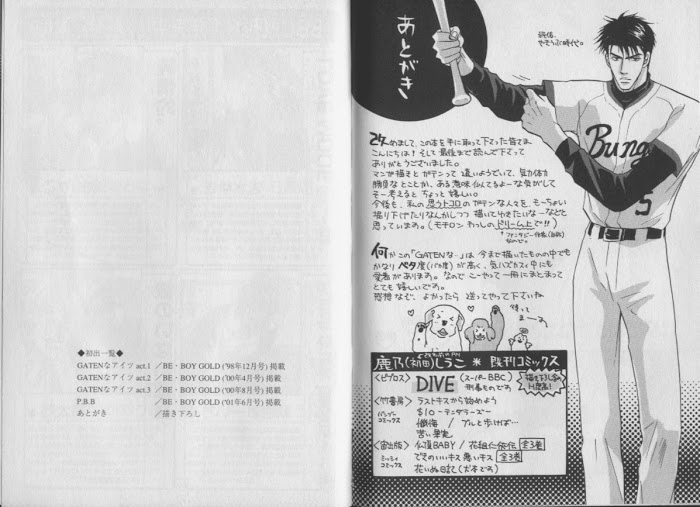 ◆初出一覧◆
GATENなアイツ act.1 ／BE・BOY GOLD ('98年12月号) 掲載
GATENなアイツ act.2 ／BE・BOY GOLD ('00年4月号) 掲載
GATENなアイツ act.3 ／BE・BOY GOLD ('00年8月号) 掲載
P.B.B ／BE・BOY GOLD ('01年6月号) 掲載
あとがき ／描き下ろし
あとがき
時代。
Bung
5
改めまして、この本を手に取って下さった皆さま
こんにちは！そして最後まで読んで下さって
ありがとうございました。
マンガ描きとガテンって違いようでいて、気力体力
勝負なとことか、ある意味似てるよーな気がして
そー考えるとちょっと嬉しい。
今後も、私の思うトコロのガテンな人々を、もーちょい
掘り下げたりなんかしつつ描いていきたいなーなどと
思っています。(モチロンわしのドリーム上で!!)
何かこの「GATENな…」は今まで描いたものの中でも
かなりベタ度(バカ度)が高く、気ハズカスィ中にも
愛着があります。なのでこーやって一冊にまとまって
とても嬉しいです。
感想など、よかったら送ってやって下さいね
待って
まーす
鹿乃(初田)しうこ ＊ 既刊コミックス
〈ビブロス〉 DIVE (スーパーBBC)
刑事ものです
描き下し
〈竹書房〉 ラストキスから始めよう
バンブーコミックス $10-テンダラーズ-
懺悔 / プルと歩けば…
苦い果実
〈宙出版〉 仏頂BABY / 花組仁侠伝 全3巻
ミッシィコミックス できのいいキス悪いキス 全3巻
花いぬ日記(犬本です)